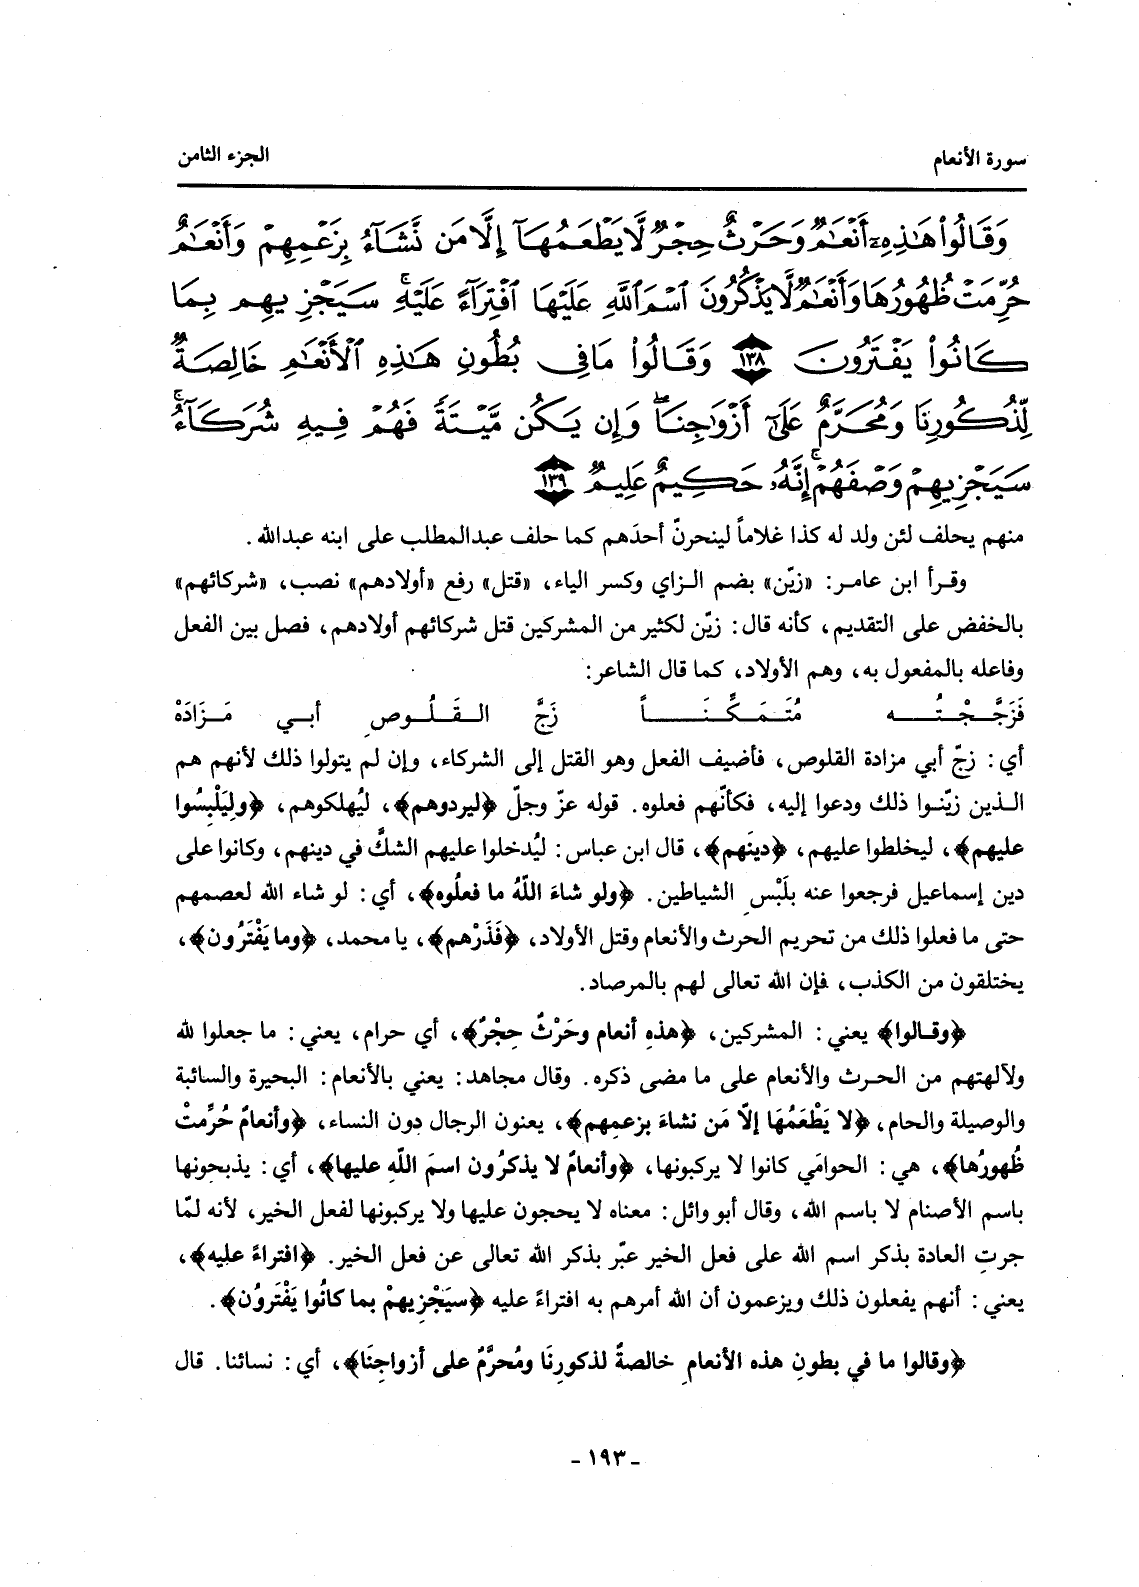 سورة الأنعام
الجزء الثامن
وَقَالُواْ هَٰذِهِۦٓ أَنْعَٰمٌ وَحَرْثٌ حِجْرٌ لَّا يَطْعَمُهَآ إِلَّا مَن نَّشَآءُ بِزَعْمِهِمْ وَأَنْعَٰمٌ
حُرِّمَتْ ظُهُورُهَا وَأَنْعَٰمٌ لَّا يَذْكُرُونَ ٱسْمَ ٱللَّهِ عَلَيْهَا ٱفْتِرَآءً عَلَيْهِ ۚ سَيَجْزِيهِم بِمَا
كَانُواْ يَفْتَرُونَ ١٣٨ وَقَالُواْ مَا فِى بُطُونِ هَٰذِهِ ٱلْأَنْعَٰمِ خَالِصَةٌ
لِّذُكُورِنَا وَمُحَرَّمٌ عَلَىٰٓ أَزْوَٰجِنَا ۖ وَإِن يَكُن مَّيْتَةً فَهُمْ فِيهِ شُرَكَآءُ ۚ
سَيَجْزِيهِمْ وَصْفَهُمْ ۚ إِنَّهُۥ حَكِيمٌ عَلِيمٌ ١٣٩
منهم يحلف لئن ولد له كذا غلاماً لينحرنّ أحدَهم كما حلف عبدالمطلب على ابنه عبدالله .
وقرأ ابن عامر: «زيّن» بضم الزاي وكسر الياء، «قتل» رفع «أولادهم» نصب، «شركائهم»
بالخفض على التقديم، كأنه قال: زيّن لكثير من المشركين قتل شركائهم أولادهم، فصل بين الفعل
وفاعله بالمفعول به، وهم الأولاد، كما قال الشاعر:
فَزَجَّجْتُه مُتَمَكِّنَاً زَجَّ القَلُوصِ أبي مَزَادَهْ
أي: زجّ أبي مزادة القلوص، فأضيف الفعل وهو القتل إلى الشركاء، وإن لم يتولوا ذلك لأنهم هم
الذين زيّنوا ذلك ودعوا إليه، فكأنّهم فعلوه. قوله عزّ وجلّ ﴿ليردوهم﴾، ليُهلكوهم، ﴿ولِيَلْبِسُوا
عليهم﴾، ليخلطوا عليهم، ﴿دينَهم﴾، قال ابن عباس: ليُدخلوا عليهم الشكَّ في دينهم، وكانوا على
دين إسماعيل فرجعوا عنه بلَبْسِ الشياطين. ﴿ولو شاءَ اللّهُ ما فعلُوه﴾، أي: لو شاء الله لعصمهم
حتى ما فعلوا ذلك من تحريم الحرث والأنعام وقتل الأولاد، ﴿فَذَرْهم﴾، يا محمد، ﴿وما يَفْتَرُون﴾،
يختلقون من الكذب، فإن الله تعالى لهم بالمرصاد.
﴿وقالوا﴾ يعني: المشركين، ﴿هذهِ أنعام وحَرْثٌ حِجْرٌ﴾، أي حرام، يعني: ما جعلوا لله
ولآلهتهم من الحرث والأنعام على ما مضى ذكره. وقال مجاهد: يعني بالأنعام: البحيرة والسائبة
والوصيلة والحام، ﴿لا يَطْعَمُهَا إلاّ مَن نشاءَ بزعمِهم﴾، يعنون الرجال دون النساء، ﴿وأنعامٌ حُرِّمتْ
ظُهورُها﴾، هي: الحوامَي كانوا لا يركبونها، ﴿وأنعامٌ لا يذكرُون اسمَ اللّهِ عليها﴾، أي: يذبحونها
باسم الأصنام لا باسم الله، وقال أبو وائل: معناه لا يحجون عليها ولا يركبونها لفعل الخير، لأنه لمّا
جرتِ العادة بذكر اسم الله على فعل الخير عبّر بذكر الله تعالى عن فعل الخير. ﴿افتراءً عليه﴾،
يعني: أنهم يفعلون ذلك ويزعمون أن الله أمرهم به افتراءً عليه ﴿سيَجْزِيهمْ بما كانُوا يَفْتَرُون﴾.
﴿وقالوا ما في بطونِ هذه الأنعامِ خالصةٌ لذكورِنَا ومُحرَّمٌ على أزواجِنَا﴾، أي: نسائنا. قال
- ١٩٣ -